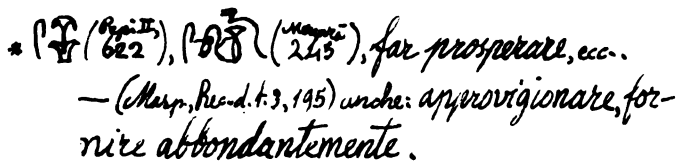 * (Pepi II, 622), (Merenrâ 245), far prosperare, ecc..
— (Masp., Rec. d. t. 3, 195) anche: approvigionare, for-
nire abbondantemente.